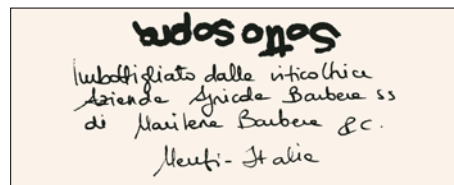 Sotto sopra
Imbottigliato dalla viticoltrice
Azienda Agricola Barbera ss
di Marilena Barbera & C.
Menfi - Italia